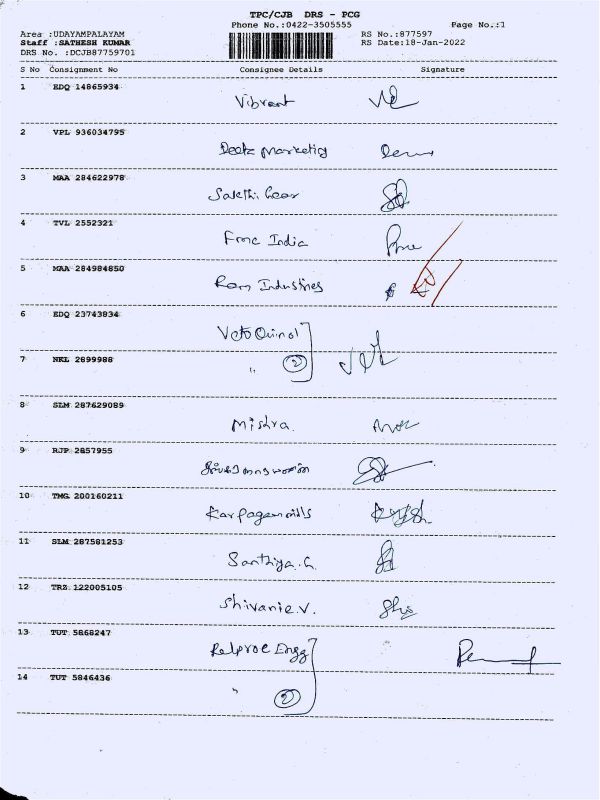 TPC/CJB DRS - PCG
Phone No.:0422-3505555 Page No.:1
Area :UDAYAMPALAYAM RS No.:877597
Staff :SATHESH KUMAR RS Date:18-Jan-2022
DRS No. :DCJB87759701
S No Consignment No Consignee Details Signature
1 EDQ 14865934
Vibrant
2 VPL 936034795
Marketing
3 MAA 284622978
Sakthi Gear
4 TVL 2552321
Fmc India
5 MAA 284984850
Ram Industries
6 EDQ 23743834
Veto Quinol
7 NKL 2899988
" 2
8 SLM 287629089
Mishra
9 RJP 2857955
10 TMG 200160211
Karpagam mills
11 SLM 287581253
Santhiya.G.
12 TRZ 122005105
Shivanie.V.
13 TUT 5868247
Relproe Engg
14 TUT 5846436
" 2